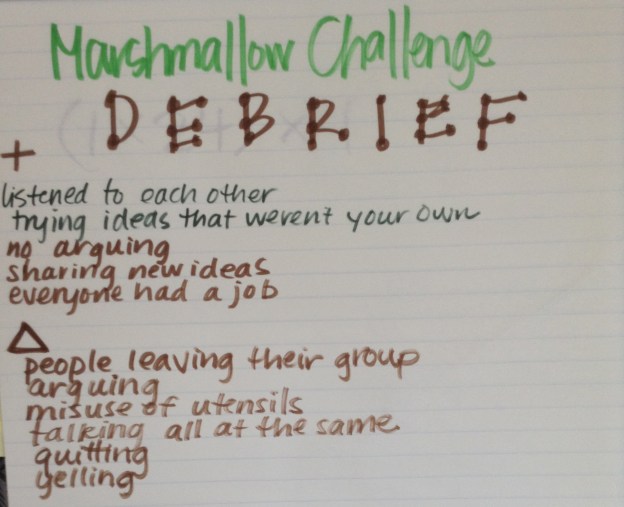 Marshmallow Challenge
DEBRIEF
+
listened to each other
trying ideas that weren't your own
no arguing
sharing new ideas
everyone had a job
Δ
people leaving their group
arguing
misuse of utensils
talking all at the same
quitting
yelling